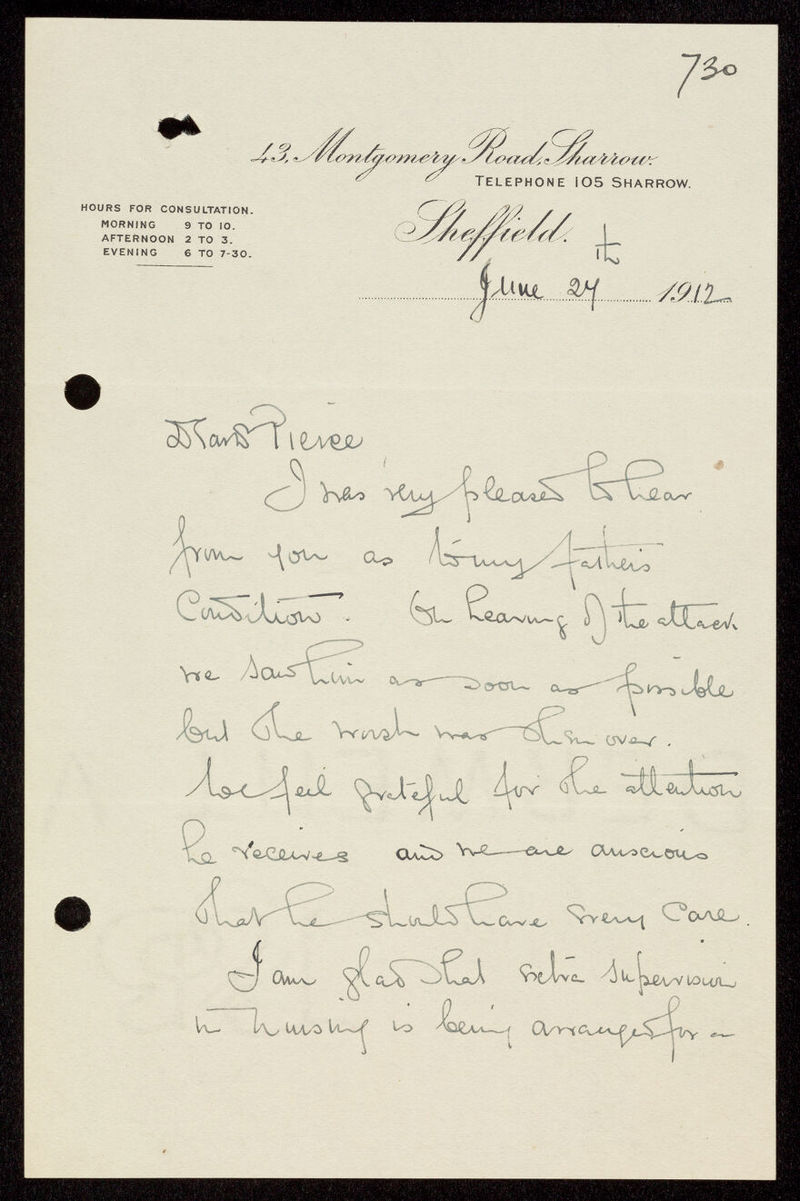 730
43, Montgomery Road, Sharrow.
TELEPHONE 105 SHARROW.
HOURS FOR CONSULTATION.
MORNING 9 TO 10.
AFTERNOON 2 TO 3.
EVENING 6 TO 7-30.
Sheffield.
June 27th 1912
Dear Dr Pierce
I was very pleased to hear
from you as to my father's
Condition. On hearing of the attack
we saw him as soon as possible
but the worst was then over.
We feel grateful for the attention
he receives and we are anxious
that he should have every care.
I am glad that extra supervision
in nursing is being arranged for a